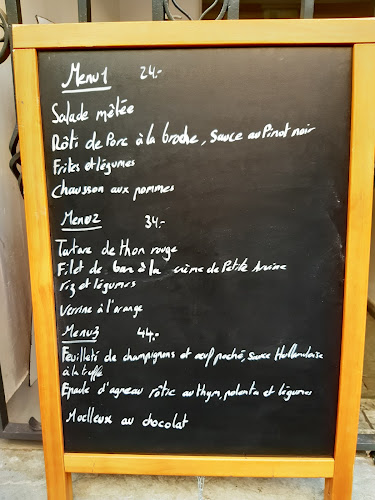 Menu 1 24.-
Salade mêlée
Rôti de Porc à la broche, Sauce au Pinot noir
Frites et légumes
Chausson aux pommes
Menu 2 34.-
Tartare de thon rouge
Filet de bar à la crème de Petite Arvine
riz et légumes
Verrine à l'orange
Menu 3 44.-
Feuilleté de champignons et oeuf poché, sauce Hollandaise
à la truffe
Epaule d'agneau rôtie au thym, polenta et légumes
Moelleux au chocolat